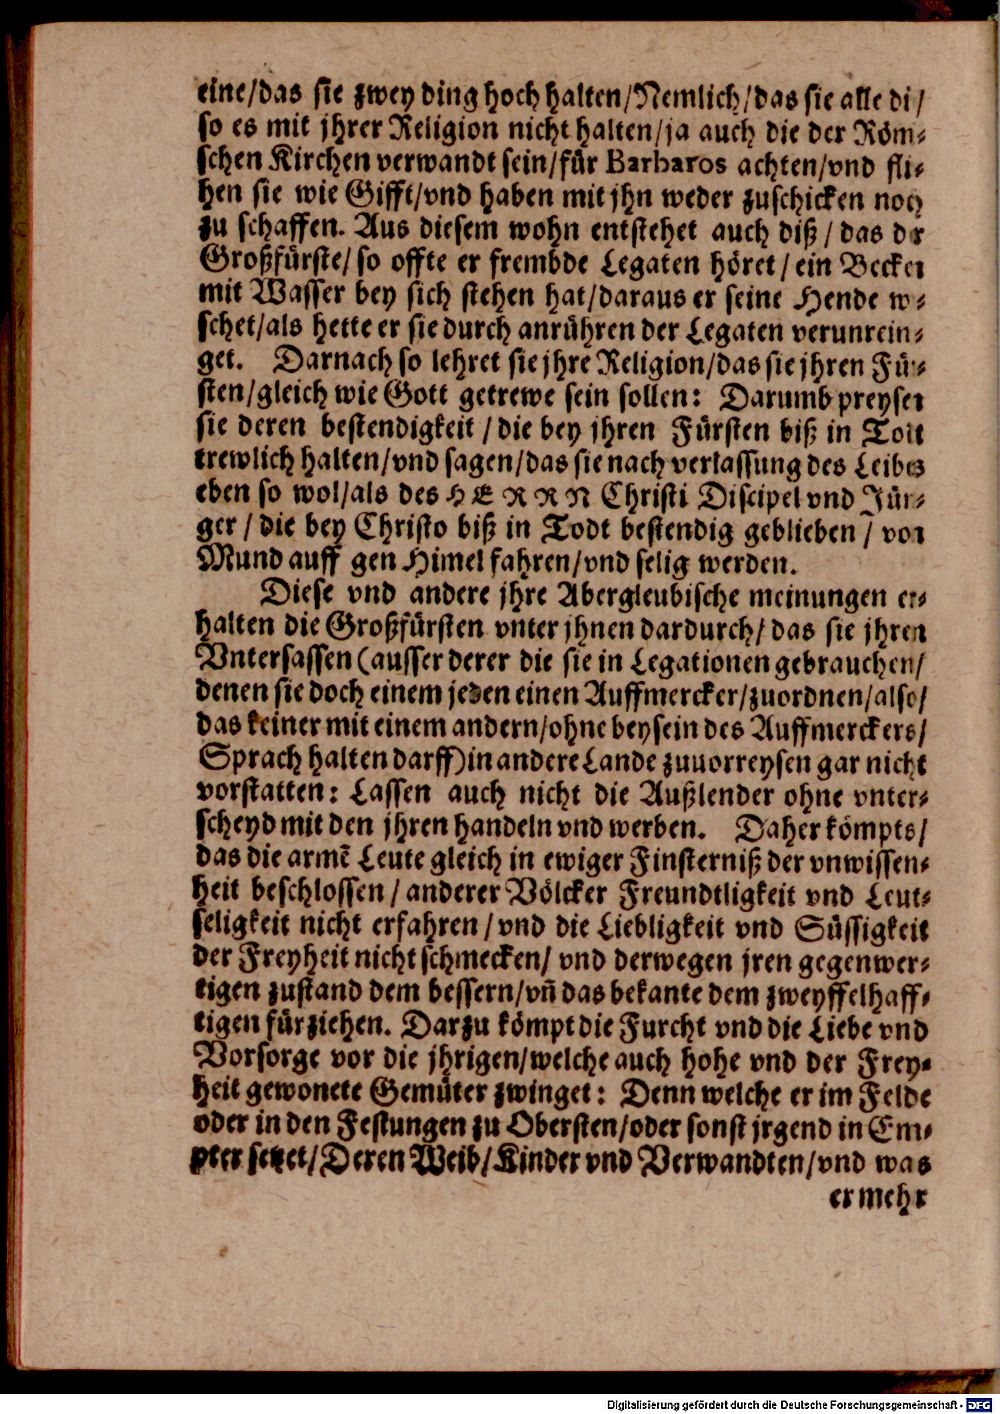 eine/das sie zwey ding hoch halten/Nemlich/das sie alle di/
so es mit jhrer Religion nicht halten/ja auch die der Röm-
schen Kirchen verwandt sein/für Barbaros achten/vnd fli-
hen sie wie Gifft/vnd haben mit jhn weder zuschicken noch
zu schaffen. Aus diesem wohn entstehet auch diß / das der
Großfürste/ so offte er frembde Legaten höret / ein Becken
mit Wasser bey sich stehen hat/daraus er seine Hende w-
schet/als hette er sie durch anrühren der Legaten verunrein-
get. Darnach so lehret sie jhre Religion/das sie jhren Für-
sten/gleich wie Gott getrewe sein sollen: Darumb preysen
sie deren bestendigkeit / die bey jhren Fürsten biß in Todt
trewlich halten/vnd sagen/das sie nach verlassung des Leibes
eben so wol/als des HERRN Christi Discipel vnd Jün-
ger / die bey Christo biß in Todt bestendig geblieben / von
Mund auff gen Himel fahren/vnd selig werden.
Diese vnd andere jhre Abergleubische meinungen er-
halten die Großfürsten vnter jhnen dardurch/ das sie jhren
Vntersassen (ausser derer die sie in Legationen gebrauchen/
denen sie doch einem jeden einen Auffmercker/zuordnen/also/
das keiner mit einem andern/ohne beysein des Auffmerckers/
Sprach halten darff) in andere Lande zuuorreysen gar nicht
vorstatten: Lassen auch nicht die Außlender ohne vnter-
scheyd mit den jhren handeln vnd werben. Daher kömpts/
das die armē Leute gleich in ewiger Finsterniß der vnwissen-
heit beschlossen / anderer Völcker Freundtligkeit vnd Leut-
seligkeit nicht erfahren / vnd die Liebligkeit vnd Süssigkeit
der Freyheit nicht schmecken/ vnd derwegen jren gegenwer-
tigen zustand dem bessern/vn̄ das bekante dem zweyffelhaff-
tigen fürziehen. Darzu kömpt die Furcht vnd die Liebe vnd
Vorsorge vor die jhrigen/welche auch hohe vnd der Frey-
heit gewonete Gemüter zwinget: Denn welche er im Felde
oder in den Festungen zu Obersten/oder sonst jrgend in Em-
pter setzet/Deren Weib/Kinder vnd Verwandten/vnd was
er mehr
Digitalisierung gefördert durch die Deutsche Forschungsgemeinschaft - DFG